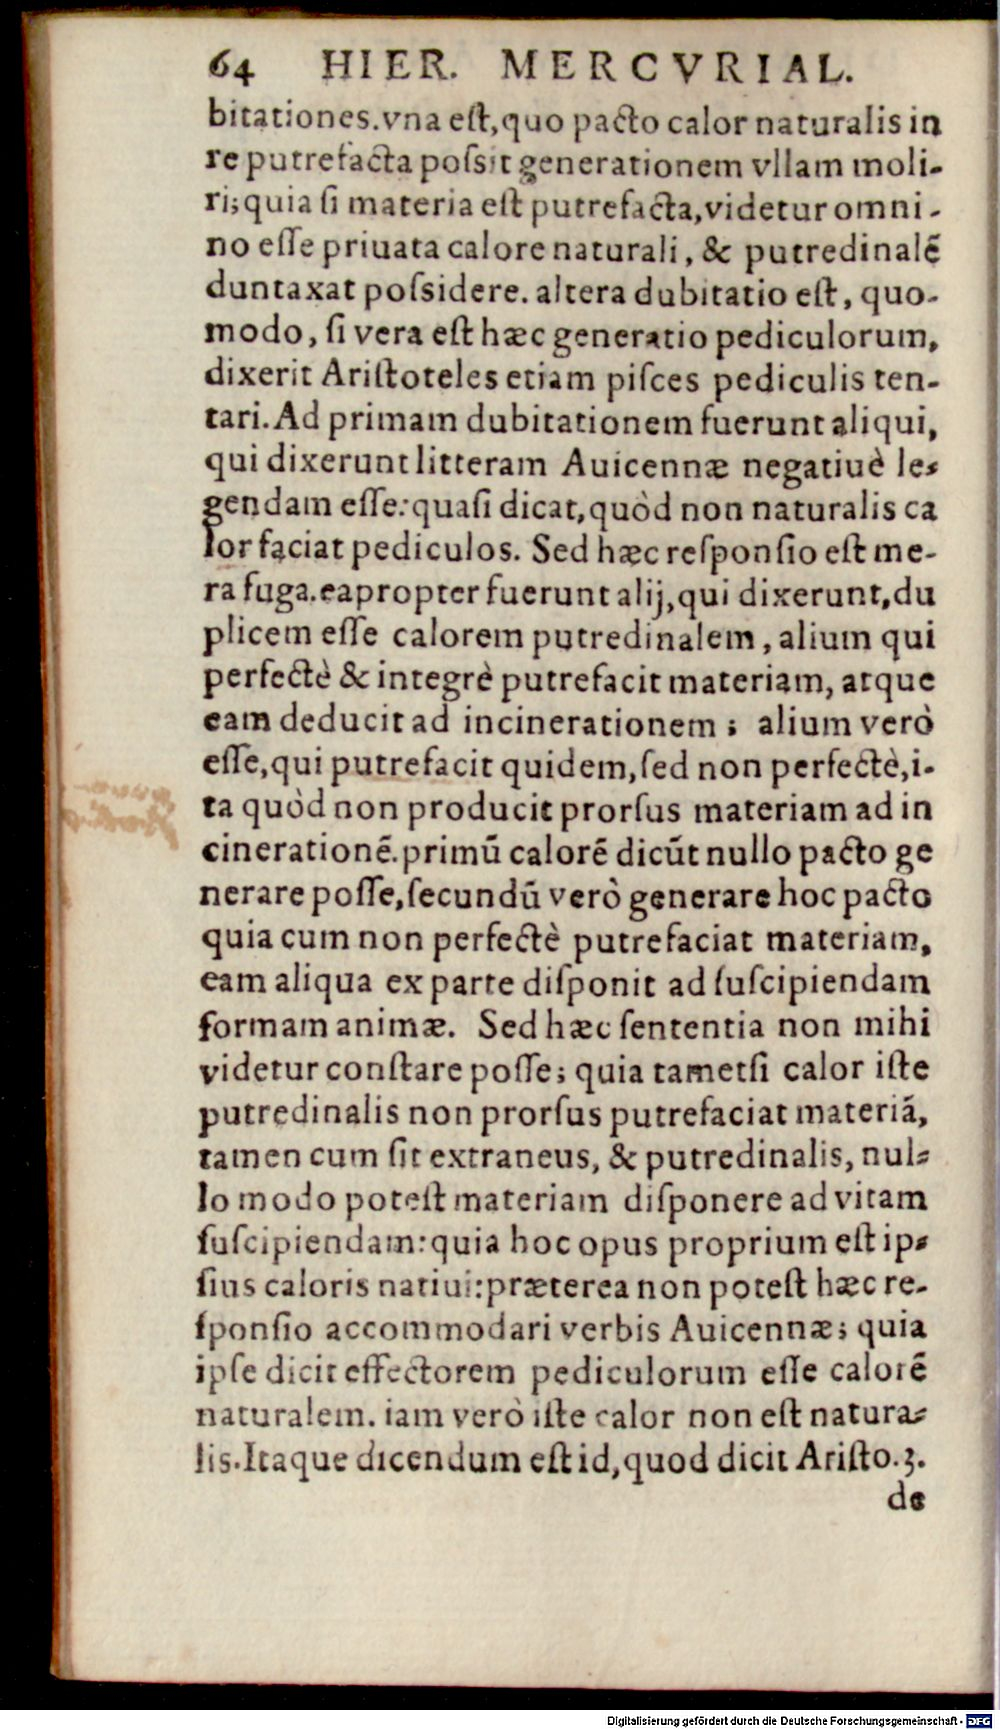 64 HIER. MERCVRIAL.
bitationes.vna eſt,quo pacto calor naturalis in
re putrefacta poſsit generationem vllam moli-
ri;quia ſi materia eſt putrefacta,videtur omni-
no eſſe priuata calore naturali, & putredinalē
duntaxat poſsidere. altera dubitatio eſt, quo-
modo, ſi vera eſt hæc generatio pediculorum,
dixerit Ariſtoteles etiam piſces pediculis ten-
tari. Ad primam dubitationem fuerunt aliqui,
qui dixerunt litteram Auicennæ negatiuè le-
gendam eſſe:quaſi dicat,quòd non naturalis ca
lor faciat pediculos. Sed hæc reſponſio eſt me-
ra fuga.eapropter fuerunt alij,qui dixerunt,du
plicem eſſe calorem putredinalem, alium qui
perfectè & integrè putrefacit materiam, atque
eam deducit ad incinerationem ; alium verò
eſſe,qui putrefacit quidem,ſed non perfectè,i-
ta quòd non producit prorſus materiam ad in
cinerationē.primū calorē dicūt nullo pacto ge
nerare poſſe,ſecundū verò generare hoc pacto
quia cum non perfectè putrefaciat materiam,
eam aliqua ex parte diſponit ad ſuſcipiendam
formam animæ. Sed hæc ſententia non mihi
videtur conſtare poſſe; quia tametſi calor iſte
putredinalis non prorſus putrefaciat materiā,
tamen cum ſit extraneus, & putredinalis, nul-
lo modo poteſt materiam diſponere ad vitam
ſuſcipiendam:quia hoc opus proprium eſt ip-
ſius caloris natiui:præterea non poteſt hæc re-
ſponſio accommodari verbis Auicennæ; quia
ipſe dicit effectorem pediculorum eſſe calorē
naturalem. iam verò iſte calor non eſt natura-
lis.Itaque dicendum eſt id,quod dicit Ariſto.3.
de
Digitalisierung gefördert durch die Deutsche Forschungsgemeinschaft - DFG